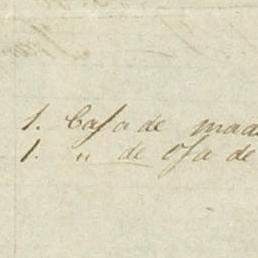 1. Casa de mad
1. " de Osa de